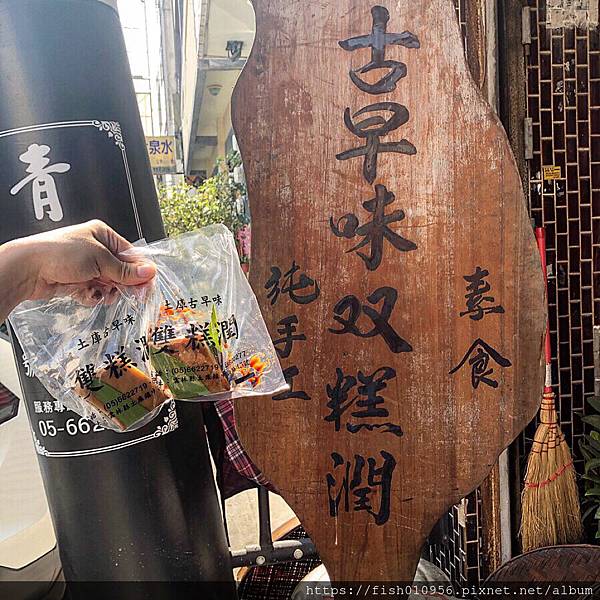 古早味双糕潤
純手工
素食
青
泉水
土庫古早味
雙糕潤
(05)6622719
土庫古早味
雙糕潤
服務專
05-662
https://fish010956.pixnet.net/album